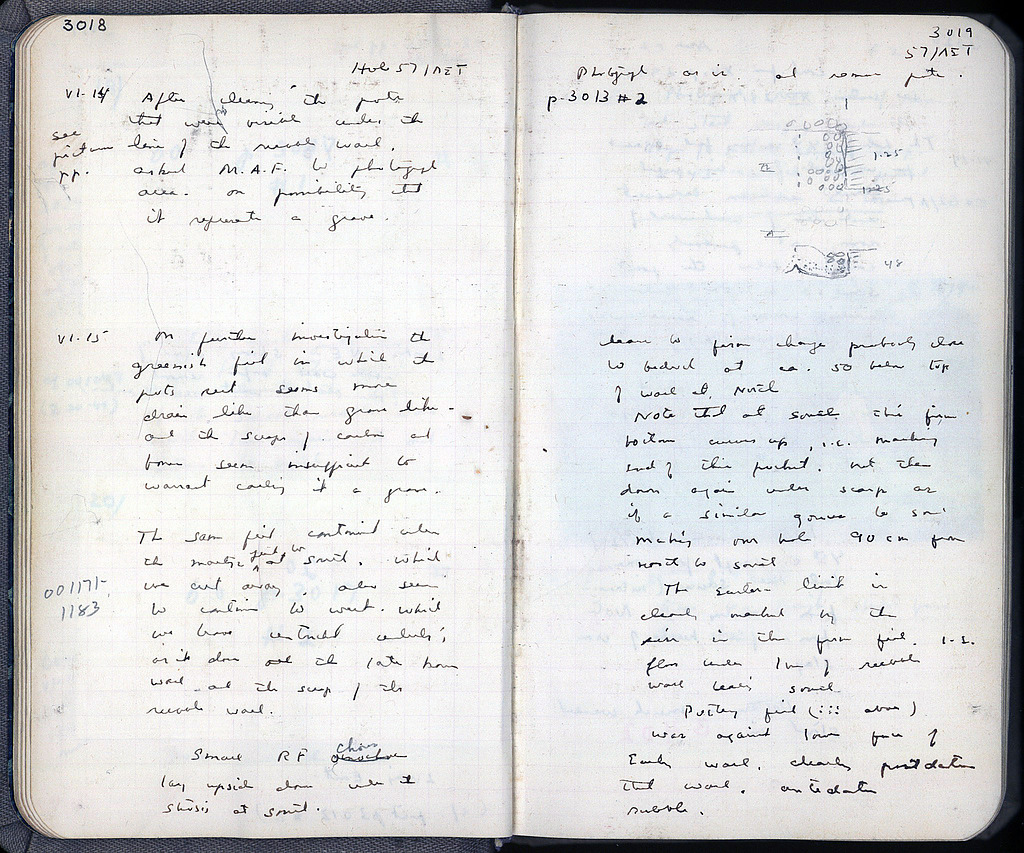 3018
Hub 57/ΛΣΤ
VI-14 After cleaning the pots
that were visible under the
see picture pp. line of the rubble wall,
asked M.A.F. to photograph
area on possibility that
it represents a grave.
VI-15 On further investigation the
greenish fill in which the
pots rest seems more
drain like than grave like -
and the scraps of carbon and
bone seem insufficient to
warrant calling it a grave.
The same fill continued under
the fill to south, which
we cut away, also seen
001171-
1183
to continue to west. which
we have
as it does and the late
wall and the scarp of the
rubble wall.
Small RF chous
lay upside down under the
at south.
3019
57/ΛΣΤ
Photograph as is. and remove pots.
p. 3013 #2
1.25
1.25
48
down to firm change probably close
to bedrock at ca. 50 below top
of wall at North
Note that at south this firm
bottom curves up, i.e. marking
end of this pocket. but then
down again under scarp as
if a similar to south
making our hole 90 cm from
north to south
The Eastern limit is
clearly marked by the
in the firm fill. i.e.
floor under line of rubble
wall south
Pottery fill (::: above)
was against lower face of
Early wall, clearly postdates
that wall, antedates
rubble.